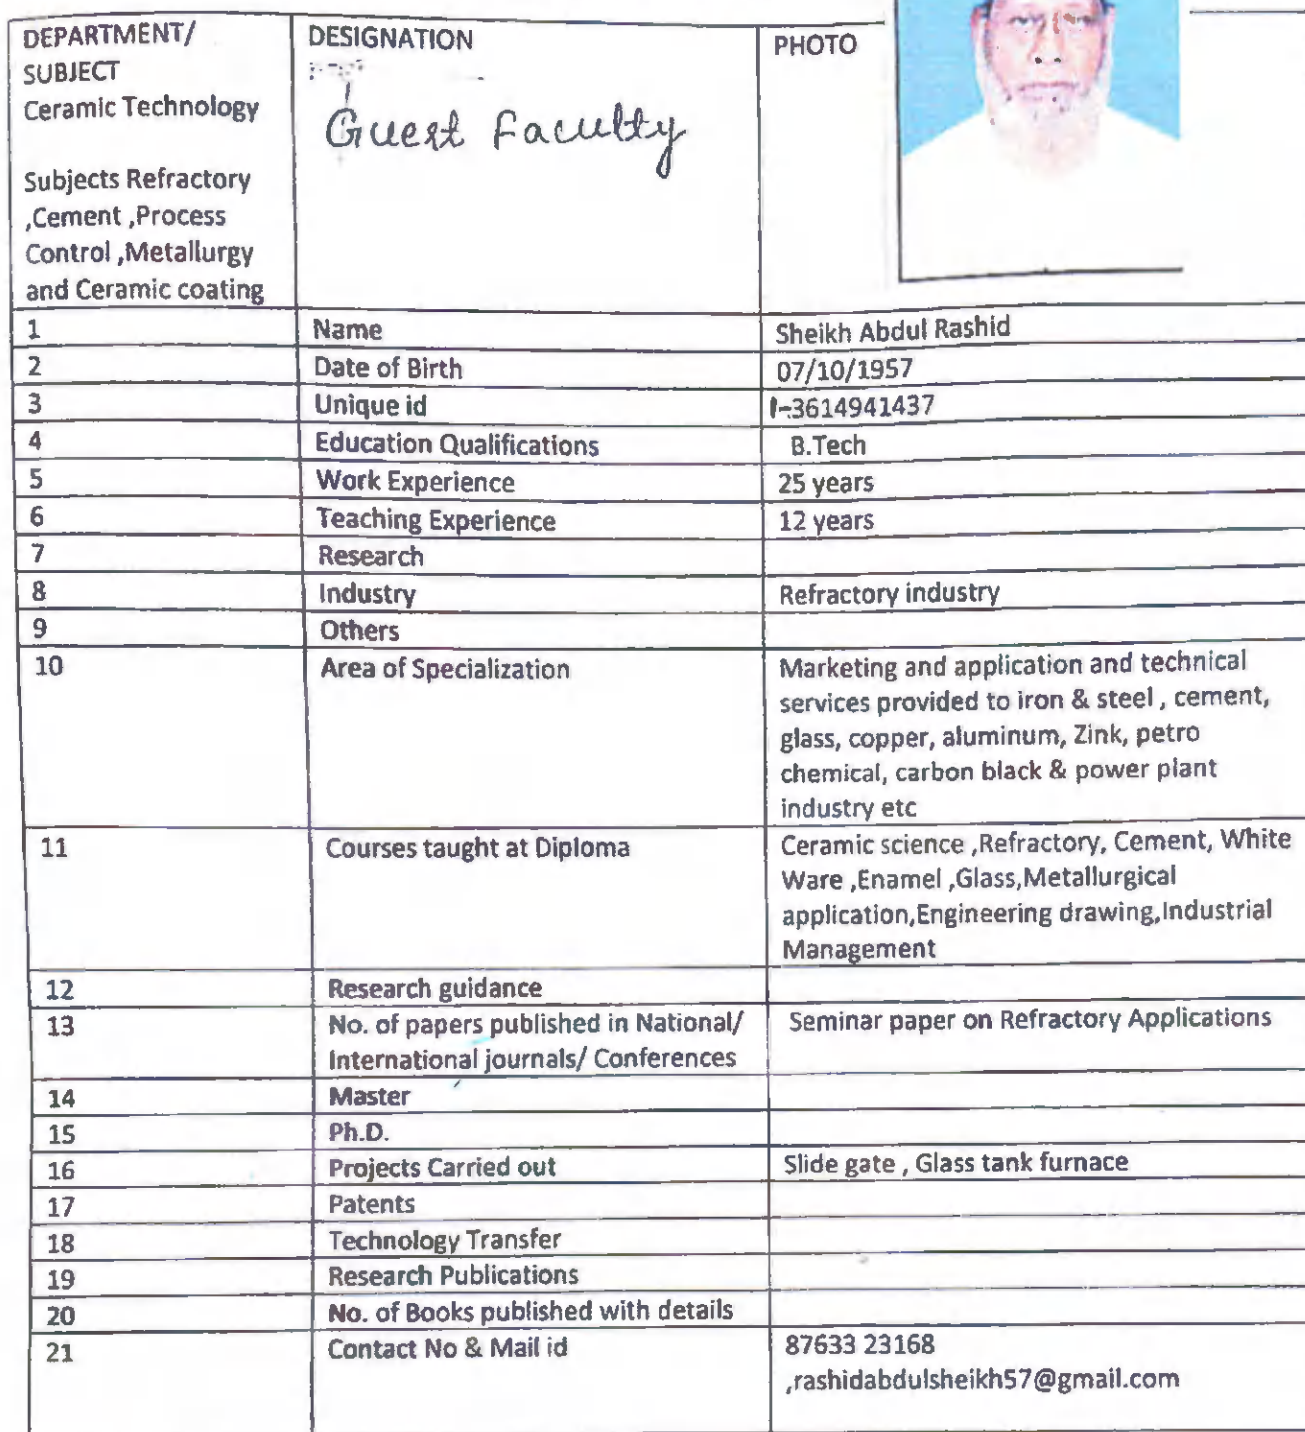 DEPARTMENT/
SUBJECT
Ceramic Technology
Subjects Refractory
,Cement ,Process
Control ,Metallurgy
and Ceramic coating
DESIGNATION
Guest Faculty
PHOTO
1 Name Sheikh Abdul Rashid
2 Date of Birth 07/10/1957
3 Unique id 1-3614941437
4 Education Qualifications B.Tech
5 Work Experience 25 years
6 Teaching Experience 12 years
7 Research
8 Industry Refractory industry
9 Others
10 Area of Specialization Marketing and application and technical
services provided to iron & steel , cement,
glass, copper, aluminum, Zink, petro
chemical, carbon black & power plant
industry etc
11 Courses taught at Diploma Ceramic science ,Refractory, Cement, White
Ware ,Enamel ,Glass,Metallurgical
application,Engineering drawing,Industrial
Management
12 Research guidance
13 No. of papers published in National/ Seminar paper on Refractory Applications
International journals/ Conferences
14 Master
15 Ph.D.
16 Projects Carried out Slide gate , Glass tank furnace
17 Patents
18 Technology Transfer
19 Research Publications
20 No. of Books published with details
21 Contact No & Mail id 87633 23168
,rashidabdulsheikh57@gmail.com